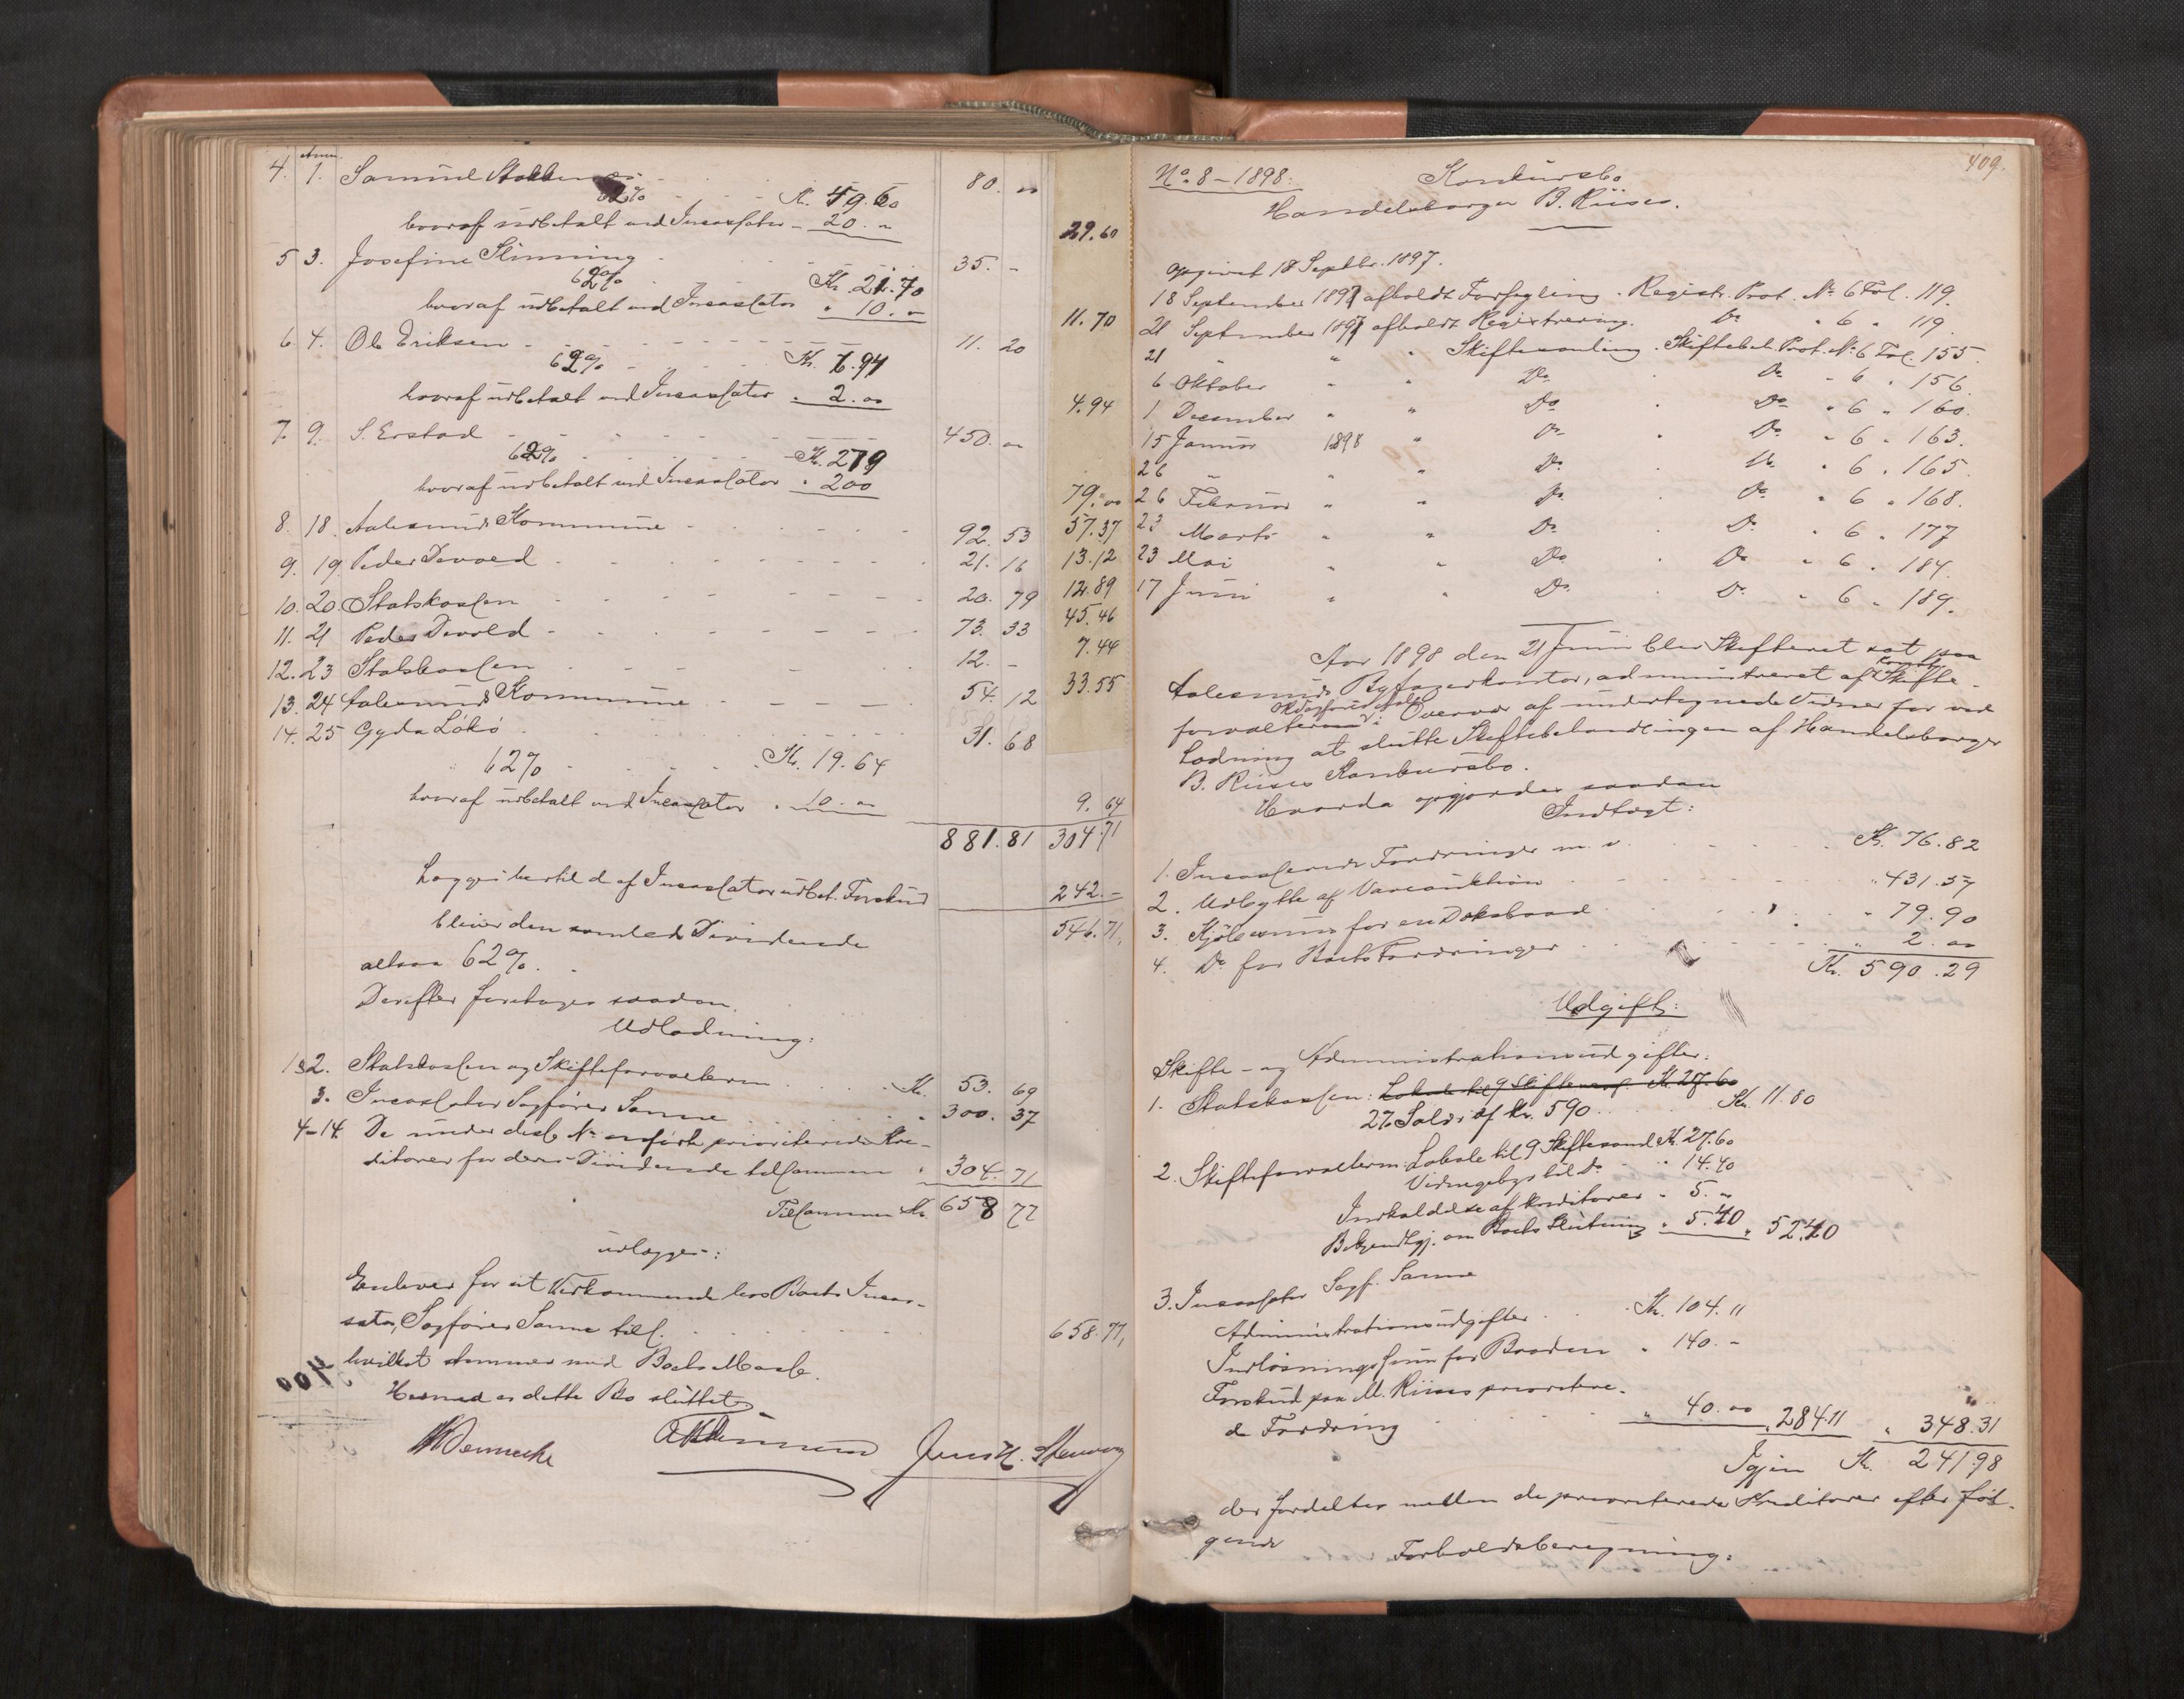 Anm.
4. 1. Samuel Stokkenes - - - 80. "
62% - - - Kr. 49.60
hvoraf udbetalt ved Incassator - 20. " 29.60
5 3. Josefine Slinning - - - 35. -
62% Kr. 21.70
hvoraf udbetalt ved Incassator " 10. - 11.70
6. 4. Ole Eriksen - - - 11. 20
62% - - Kr. 6.94
hvoraf udbetalt ved Incassator " 2.00 4.94
7. 9. S. Erstad - - - 450. "
62% - - - Kr. 279
hvoraf udbetalt ved Incassator " 200 79.00
8. 18. Aalesunds Kommune - - - 92. 53 57.37
9. 19. Peder Devold - - - 21. 16 13.12
10. 20. Statskassen - - - 20. 79 12.89
11. 21 Peder Devold - - - 73. 33 45.46
12. 23 Statskassen - - - 12. - 7.44
13. 24 Aalesunds Kommune - - - 54. 12 33.55
14. 25 Gyda Lökö - - - 31. 68
62% - - - Kr. 19.64
hvoraf udbetalt ved Incassator " 10. " 9. 64
881.81 304.71
Lægges hertil d. af Incassator udbet. Forskud 242.-
bliver den samlede Dividende 546.71,
altsaa 62%.
Derefter foretages saadan
Udlodning:
1&2. Statskassen og Skifteforvalteren - - Kr. 53. 69
3. Incassator Sagfører Sanne - - - " 300. 37
4-14. De under disse No anførte prioriterede Kre-
ditorer for deres Dividende tilsammen " 304. 71
Tilsammen Kr. 658 77
udlægges:
Enhver for sit Vedkommende hos Boets Incas-
sator, Sagfører Sanne tils. - - - 658.77,
hvilket stemmer med Boets Masse.
Hermed er dette Bo sluttet
Jens K. Stenvaag
409.
No. 8 - 1898. Konkursbo
Handelsborger B. Riises.
opgivet 18 Septbr. 1897.
18 September 1897 afholdt Forsegling. Registr. Prot. No 6 Fol. 119.
21 September 1897 afholdt Registrering. Do " 6 " 119
21 " " " Skiftesamling. Skiftebeh. Prot. No 6 Fol. 155.
6 Oktober " " Do Do " 6 " 156
1 December " " Do Do " 6 " 160.
15 Januar 1898 " Do Do " 6 " 163.
26 " " " Do Do " 6 " 165
26 Februar " " Do Do " 6 " 168.
23 Marts " " Do Do " 6 " 177
23 Mai " " Do Do " 6 " 184.
17 Juni " " Do Do " 6 " 189.
Aar 1898 den 21 Juni blev Skifteret sat paa
Aalesunds Byfogedkontor, administreret af Konst. Skifte-
forvalter i Overvær af undertegnede Vidner for ved
Lodning at slutte Skiftebehandlingen af Handelsborger
B. Riises Konkursbo.
Hvorda opgjordes saadan
Indtægt:
1. Incasserede Fordringer m. v. - - - Kr. 76.82
2. Udbytte af Vareauktion - - - " 431.57
3. Kjøbesum for en Doksbaad - - - " 79.90
4. Do for Boets Fordringer - - - " 2.00
Kr. 590.29
Udgift:
Skifte- og Administrationsudgifter:
1. Statskassen: Lokale til 9 Skiftesaml. Kr. 27.60
2% Salær af Kr. 590 - - Kr. 11.80
2. Skifteforvalteren: Lokale til 9 Skiftesaml Kr. 27.60
Vidnegebyr til Do - " 14.40
Indkaldelse af Kreditorer - 5. "
Bekjendtgj. om Boets Slutning " 5.40 " 52.40
3. Incassator Sagf. Sanne
Administrationsudgifter - - Kr. 104.11
Indløsningssum for Baaden " 140.-
Forskud paa M. Riises prioritere-
de Fordring - - - " 40.00 " 284.11 " 348.31
Igjen Kr. 241.98
der fordeles mellem de prioriterede Kreditorer efter føl-
gende Forholdsberegning: